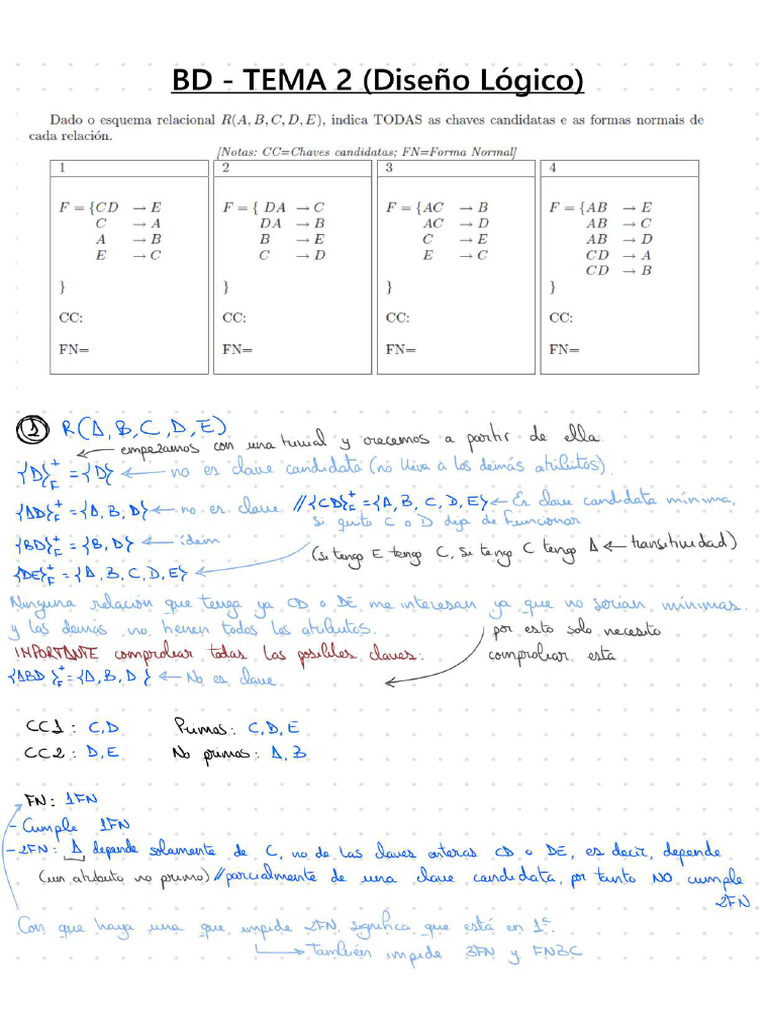 BD - TEMA 2 (Diseño Lógico)
Dado o esquema relacional R(A, B, C, D, E), indica TODAS as chaves candidatas e as formas normais de
cada relación.
[Notas: CC=Chaves candidatas; FN=Forma Normal]
1
F = {CD → E
C → A
A → B
E → C
}
CC:
FN=
2
F = { DA → C
DA → B
B → E
C → D
}
CC:
FN=
3
F = {AC → B
AC → D
C → E
E → C
}
CC:
FN=
4
F = {AB → E
AB → C
AB → D
CD → A
CD → B
}
CC:
FN=
① R(A, B, C, D, E)
← empezamos con una trivial y crecemos a partir de ella
{D}⁺F = {D} ← no es clave candidata (no lleva a los demás atributos)
{AD}⁺F = {A, B, D} ← no es clave // {CD}⁺F = {A, B, C, D, E} ← Es clave candidata mínima,
si quito C o D deja de funcionar
{BD}⁺F = {B, D} ← ídem
(si tengo E tengo C, si tengo C tengo A ← transitividad)
{DE}⁺F = {A, B, C, D, E} ←
Ninguna relación que tenga ya CD o DE me interesan ya que no serían mínimas.
y las demás no tienen todos los atributos.
por esto solo necesito
IMPORTANTE comprobar todas las posibles claves:
comprobar esta
{ABD}⁺F = {A, B, D} ← No es clave
CC1: C, D Primos: C, D, E
CC2: D, E No primos: A, B
FN: 1FN
- Cumple 1FN
- 2FN: A depende solamente de C, no de las claves enteras CD o DE, es decir, depende
(un atributo no primo) // parcialmente de una clave candidata, por tanto NO cumple
2FN
Con que haya una que impide 2FN, significa que está en 1ª
→ También impide 3FN y FNBC